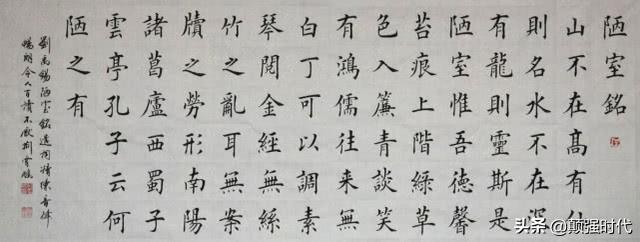 陋室銘
山不在髙有仙
則名水不在深
有龍則靈斯是
陋室惟吾德馨
苔痕上階緑草
色入簾青談笑
有鴻儒往来無
白丁可以調素
琴閱金經無絲
竹之亂耳無案
牘之勞形南陽
諸葛廬西蜀子
雲亭孔子云何
陋之有
劉禹錫陋室銘遣詞精煉音律
暢朗令人百讀不厭荆霄鵬
头条 @颠强时代